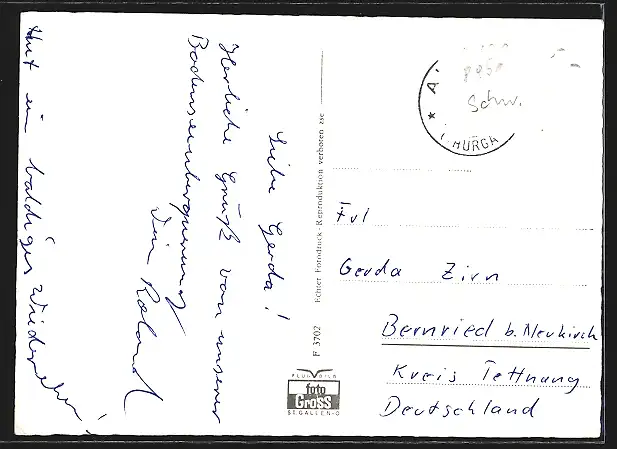 Liebe Gerda!
Herzliche Grüße von unserer
Bodenseeübequerung
Dein Roland
Auf ein baldiges Wiedersehen!
Echter Fotodruck - Reproduktion verboten
F 3702
FLUGBILD
foto
Gross
ST.GALLEN-O
* A.
Schw.
THURGA
Frl
Gerda Zirn
Bernried b. Neukirch
Kreis Tettnang
Deutschland